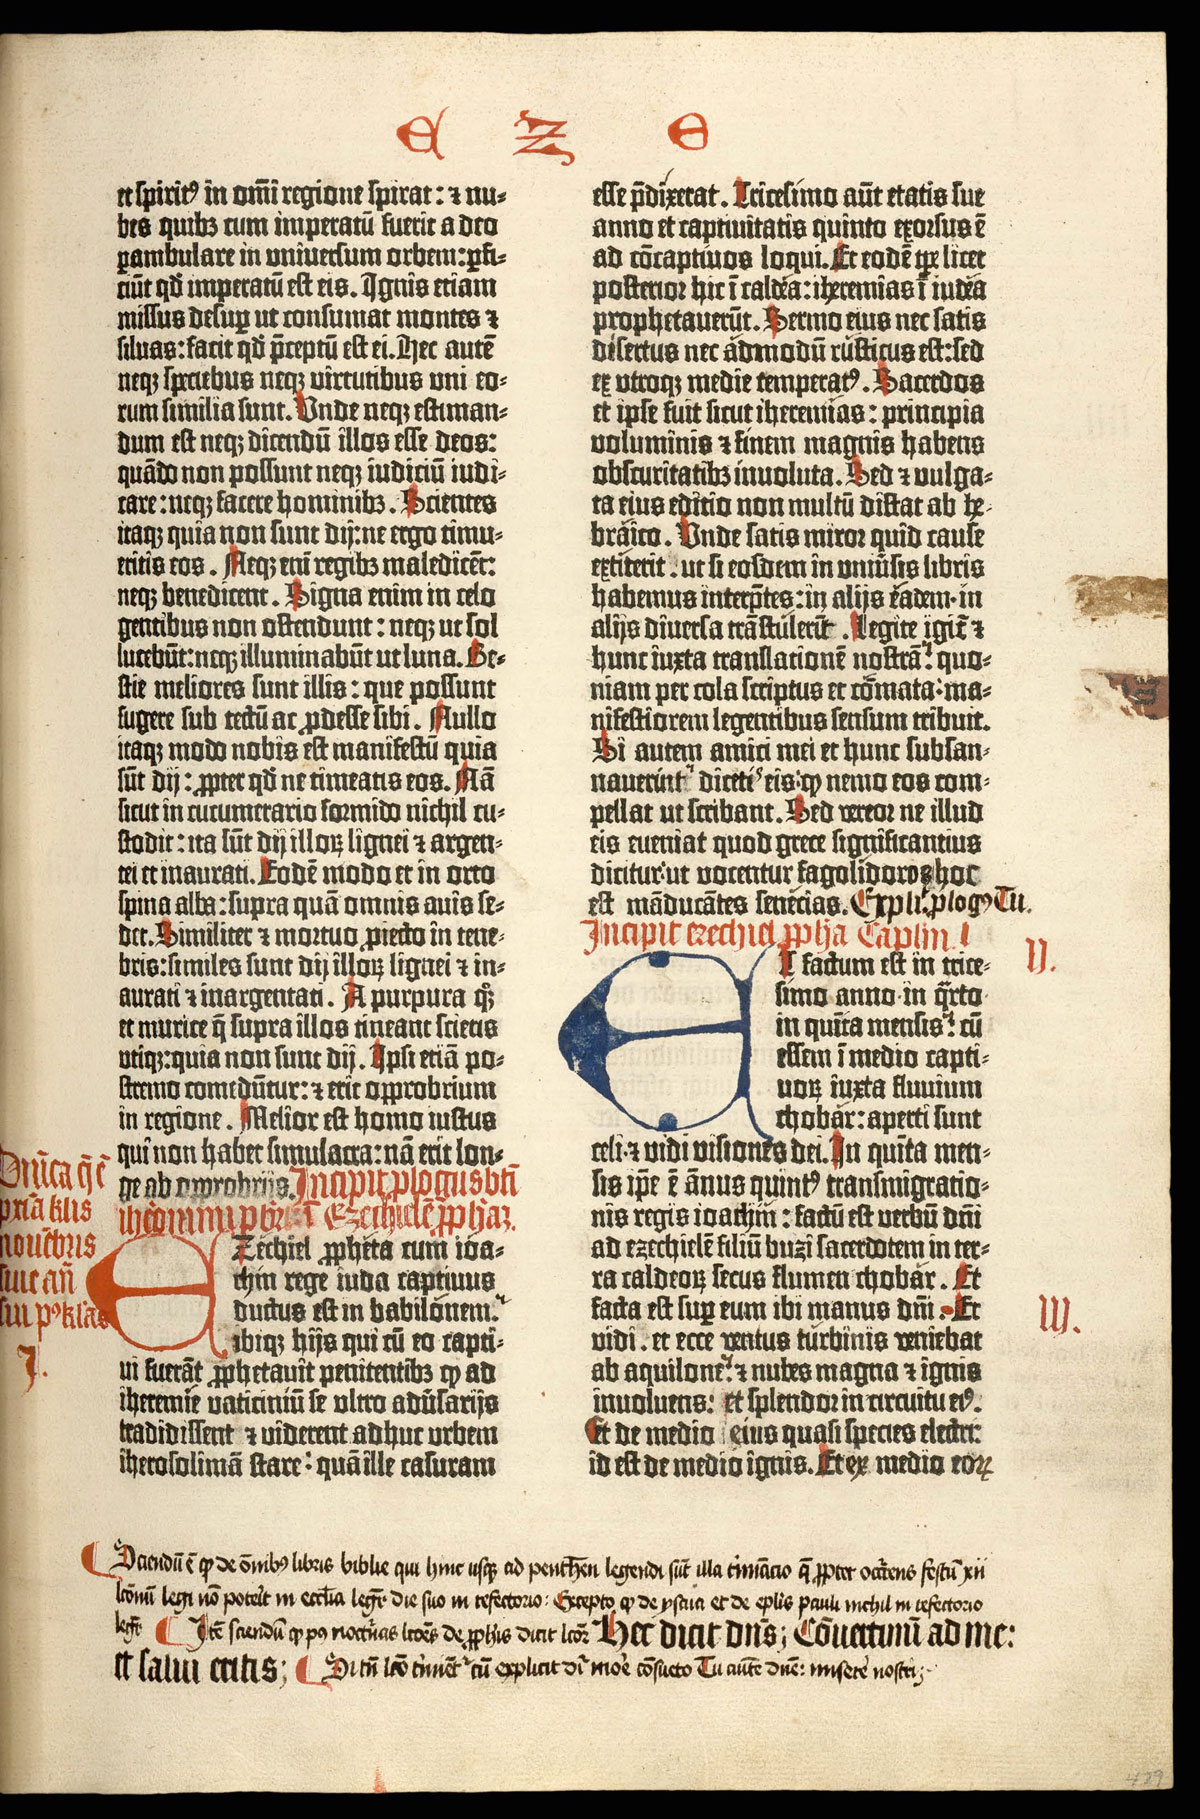 E Z E
et spiritꝰ in om̄i regione spirat : ⁊ nu-
bes quibꝫ cum imperatū fuerit a deo
ꝑambulare in universum orbem: ꝑfi-
ciūt qđ imperatū est eis. Ignis etiam
missus desuꝑ ut consumat montes ⁊
silvas: facit qđ p̄ceptū est ei. Hec autē
neqꝫ speciebus neqꝫ virtutibus uni eo-
rum similia sunt. Unde neqꝫ estiman-
dum est neqꝫ dicendū illos esse deos:
quādo non possunt neqꝫ iudiciū iudi-
care: neqꝫ facere hominibꝫ. Scientes
itaqꝫ quia non sunt dij: ne ergo timu-
eritis eos. Neqꝫ eni regibꝫ maledicēt:
neqꝫ benedicent. Signa enim in celo
gentibus non ostendunt : neqꝫ ut sol
lucebūt: neqꝫ illuminabūt ut luna. Be-
stie meliores sunt illis : que possunt
fugere sub tectū ac ꝓdesse sibi. Nullo
itaqꝫ modo nobis est manifestū quia
sūt dij: ꝓpter qđ ne timeatis eos. Nā
sicut in cucumerario formido nichil cu-
stodit: ita sūt dij illoꝝ lignei ⁊ argen-
tei et inaurati. Eodē modo et in orto
spina alba: supra quā omnis avis se-
det. Similiter ⁊ mortuo ꝓiecto in tene-
bris: similes sunt dij illoꝝ lignei ⁊ in-
aurati ⁊ inargentati. A purpura qꝫ
et murice q̄ supra illos tineant scietis
utiqꝫ: quia non sunt dij. Ipsi etiā po-
stremo comedūtur: ⁊ erit opprobrium
in regione. Melior est homo iustus
qui non habet simulacra: nā erit lon-
ge ab opprobrijs. Incipit ꝓlogus bt̄i
ih'eronimi pb'ri ī Ezechielē ꝓph'am.
Ezechiel ꝓpheta cum ioa-
chin rege iuda captivus
ductus est in babilonem:
ibiqꝫ hijs qui cū eo capti-
vi fuerāt ꝓphetavit penitentibꝫ ꝙ ad
iheremie vaticiniū se ultro adv̄sarijs
tradidissent ⁊ viderent adhuc urbem
iherosolimā stare: quā ille casuram
Dnīca q̄ ē
pxīa kl'is
novēbris
sive an̄
.J.
esse p̄dixerat. Tricesimo aūt etatis sue
anno et captivitatis quinto exorsus ē
ad cōcaptivos loqui. Et eodē tꝑe licet
posterior hic ī caldea: iheremias ī iudea
prophetaverūt. Sermo eius nec satis
disertus nec admodū rusticus est: sed
ex utroqꝫ medie temperatꝰ. Sacerdos
et ipse fuit sicut iheremias: principia
voluminis ⁊ finem magnis habens
obscuritatibꝫ involuta. Sed ⁊ vulga-
ta eius editio non multū distat ab he-
braico. Unde satis miror quid cause
extiterit : ut si eosdem in univ̄sis libris
habemus interp̄tes: in alijs eadem· in
alijs diversa trāstulerūt. Legite igit̄ ⁊
hunc iuxta translationē nostrā: quo-
niam per cola scriptus et cōmata: ma-
nifestiorem legentibus sensum tribuit.
Si autem amici mei et hunc subsan-
naverint: diceti' eis: ꝙ nemo eos com-
pellat ut scribant. Sed vereor ne illud
eis eveniat quod grece significantius
dicitur: ut vocentur fagolidoros hoc
est māducātes senecias. Expli. ꝓlogꝰ Tu.
Incipit ezechiel ꝓph'a Caplm̄ I
Et factum est in trice-
simo anno in q̄rto
in quīta mensis: cū
essem ī medio capti-
voꝝ iuxta fluvium
chobar: aperti sunt
celi· ⁊ vidi visiones dei. In quīta men-
sis ip̄e ē ānus quintꝰ transmigratio-
nis regis ioachim : factū est verbū dn̄i
ad ezechielē filiū buzi sacerdotem in ter-
ra caldeoꝝ secus flumen chobar. Et
facta est suꝑ eum ibi manus dn̄i. Et
vidi: et ecce ventus turbinis veniebat
ab aquilone: ⁊ nubes magna ⁊ ignis
involvens: et splendor in circuitu eiꝰ.
Et de medio eius quasi species electri:
id est de medio ignis. Et ex medio eoꝝ
II.
III.
Sciendū ē ꝙ de om̄ibꝰ libris biblie qui hinc usqꝫ ad penthen legendi sūt illa t'minacio q̄ ꝓpter occr̄rens festū xii
lcōnū legi nō poter̄t in ecc̄lia legēt' die suo in refectorio: Excepto ꝙ de ysaia et de ep̄lis pauli nichil in refectorio
leget' Itē sciendū ꝙ pꝰ nocturnas lcōes de ꝓph'is dicit lc̄or Hec dicit dn̄s; Cōvertimī ad me:
et salvi eritis; Si tn̄ lcō t'minet' cū explicit dr̄ more cōsueto Tu autē dn̄e: miserē nostri;
489